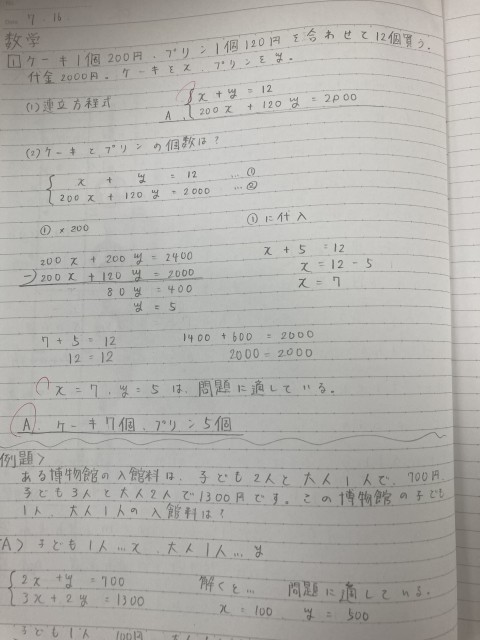 7.16
数学
1 ケーキ1個200円、プリン1個120円を合わせて12個買う。
代金2000円。ケーキをx、プリンをy。
(1) 連立方程式
A. { x + y = 12
200x + 120y = 2000
(2) ケーキとプリンの個数は?
{ x + y = 12 …①
200x + 120y = 2000 …②
① × 200
①に代入
200x + 200y = 2400
x + 5 = 12
-) 200x + 120y = 2000
x = 12 - 5
80y = 400
x = 7
y = 5
7 + 5 = 12
1400 + 600 = 2000
12 = 12
2000 = 2000
x = 7、y = 5 は、問題に適している。
A. ケーキ7個、プリン5個
例題>
ある博物館の入館料は、子ども2人と大人1人で、700円、
子ども3人と大人2人で1300円です。この博物館の子ども
1人、大人1人の入館料は?
A> 子ども1人…x、大人1人…y
{ 2x + y = 700
解くと… 問題に適している。
3x + 2y = 1300
x = 100 y = 500
子ども1人 100円